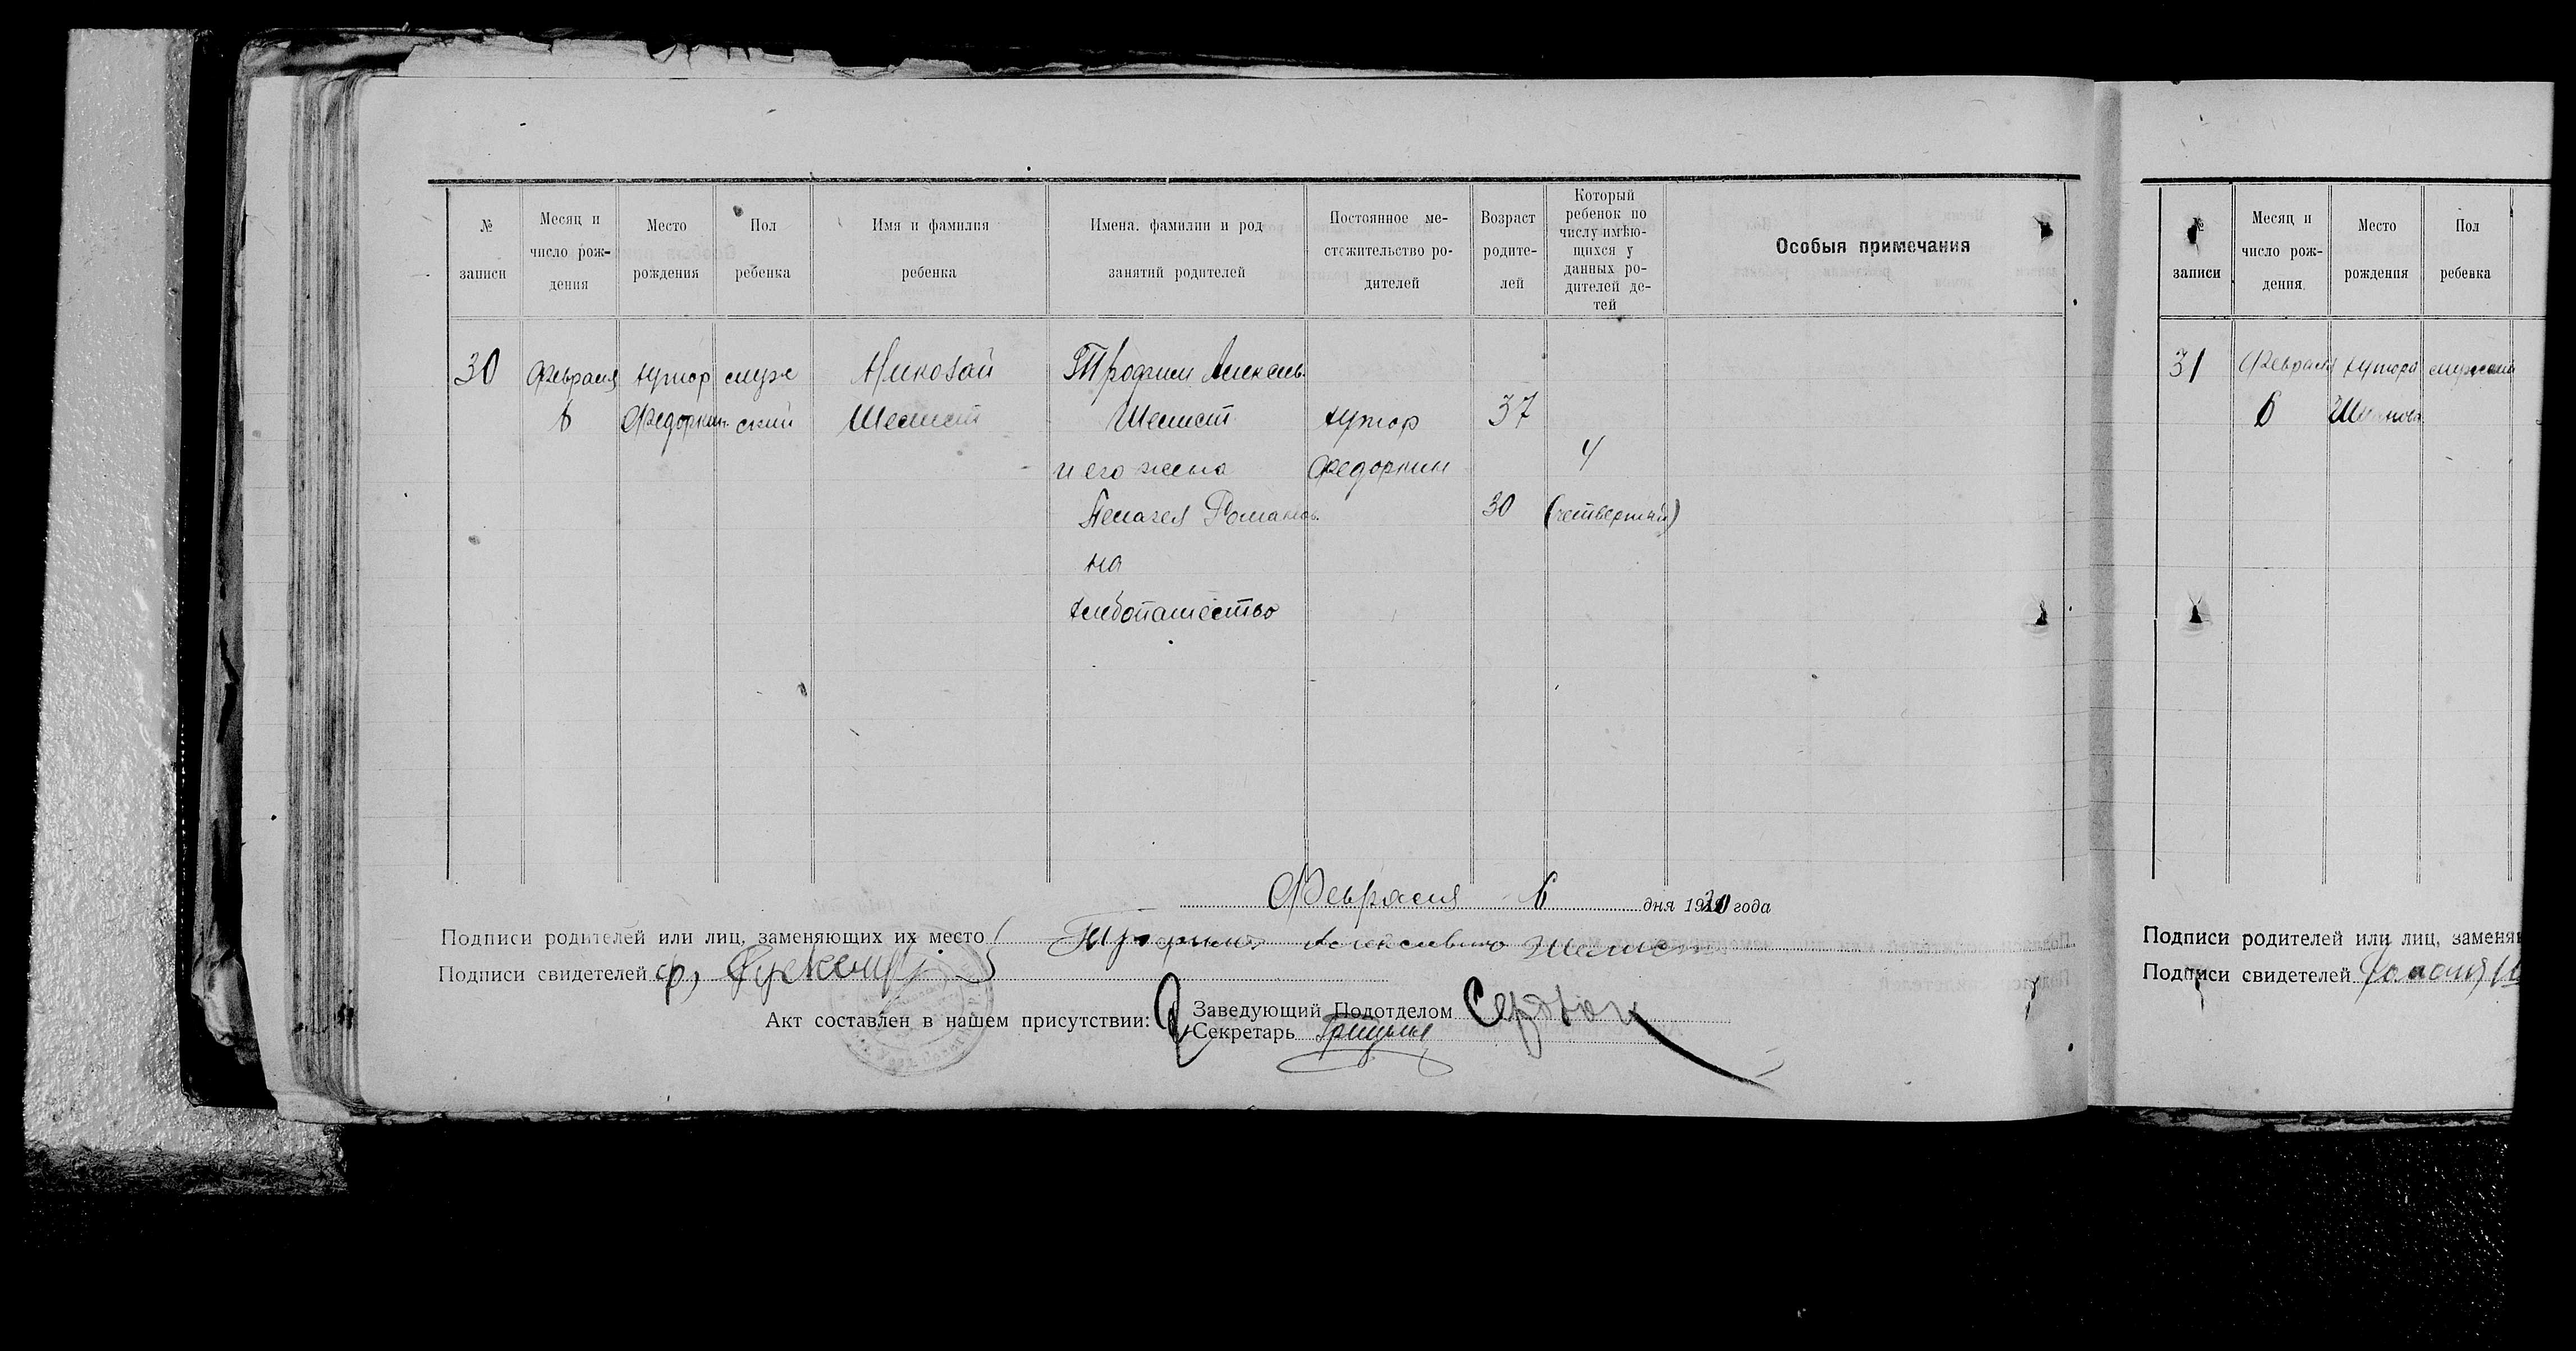 № записи
Месяц и число рож-дения
Место рождения
Пол ребенка
Имя и фамилия ребенка
Имена. фамилии и род занятий родителей
Постоянное ме-стожительство ро-дителей
Возраст родите-лей
Который ребенок по числу имѣю-щихся у данных ро-дителей де-тей
Особыя примечания
30 Февраля хутор муже Николай Трофим Алексеев.
6 Федоркин. ский Шелест Шелест хутор 37
и его жена Федоркин 4
Пелагея Романов. 30 (четвертый)
на
хлебопашество
Февраля 6 дня 1920 года
Подписи родителей или лиц, заменяющих их место Трофим Алексеевич Шелест
Подписи свидетелей
Акт составлен в нашем присутствии:
Заведующий Подотделом
Секретарь
№ записи
Месяц и число рож-дения
Место рождения
Пол ребенка
31 Февраля хутор
6
Подписи родителей или лиц, заменя
Подписи свидетелей